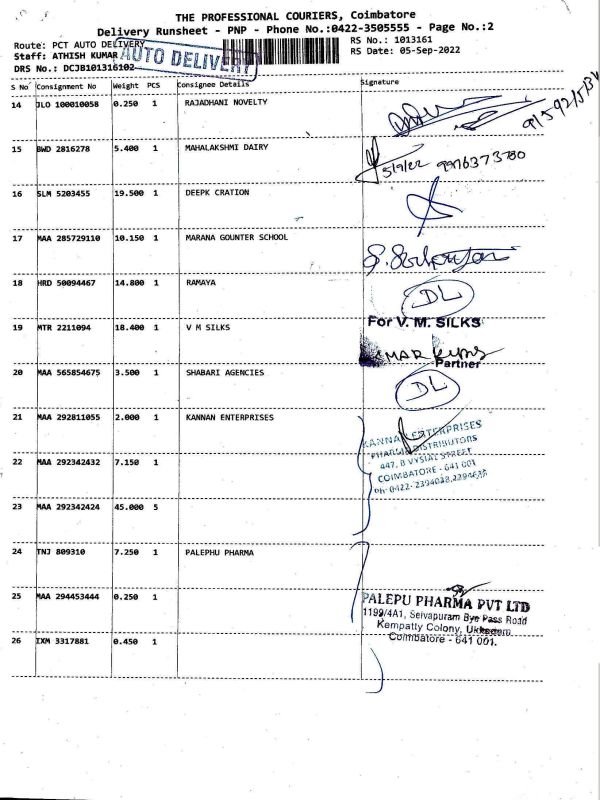 THE PROFESSIONAL COURIERS, Coimbatore
Delivery Runsheet - PNP - Phone No.:0422-3505555 - Page No.:2
Route: PCT AUTO DELIVERY
RS No.: 1013161
Staff: ATHISH KUMAR
RS Date: 05-Sep-2022
AUTO DELIVERY
DRS No.: DCJB101316102
S No Consignment No Weight PCS Consignee Details Signature
14 JLO 100010058 0.250 1 RAJADHANI NOVELTY
15 BWD 2816278 5.400 1 MAHALAKSHMI DAIRY
5/9/22 9976373780
16 SLM 5203455 19.500 1 DEEPK CRATION
17 MAA 285729110 10.150 1 MARANA GOUNTER SCHOOL
18 HRD 50094467 14.800 1 RAMAYA
DL
19 MTR 2211094 18.400 1 V M SILKS
For V. M. SILKS
Partner
20 MAA 565854675 3.500 1 SHABARI AGENCIES
DL
21 MAA 292811055 2.000 1 KANNAN ENTERPRISES
KANNAN ENTERPRISES
PHARMA DISTRIBUTORS
447, B VYSIAL STREET
COIMBATORE - 641 001
Ph: 0422-2394028,2394638
22 MAA 292342432 7.150 1
23 MAA 292342424 45.000 5
24 TNJ 809310 7.250 1 PALEPHU PHARMA
25 MAA 294453444 0.250 1
PALEPU PHARMA PVT LTD
1199/4A1, Selvapuram Bye Pass Road
Kempatty Colony, Ukkadam
Coimbatore - 641 001.
26 IXM 3317881 0.450 1